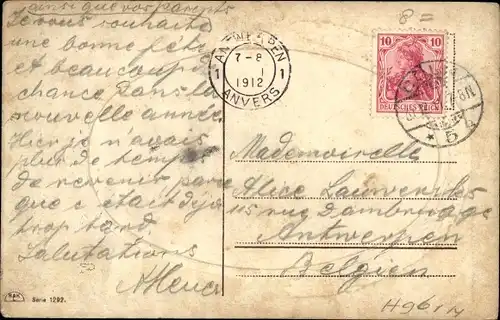 ainsi que vos parents
Je vous souhaite
une bonne fête
et beaucoup
chance dans la
nouvelle année
Hier je n'avais
plus de temps
de revenir parce
que c était déjà
trop tard.
Salutations
8=
ANTWERPEN
7-8
1 1 1
1912
ANVERS
10 10
DEUTSCHES REICH
Mademoiselle
Alice Lauwericks
115 rue Dambrugge
Antwerpen
Belgien
Serie 1292.